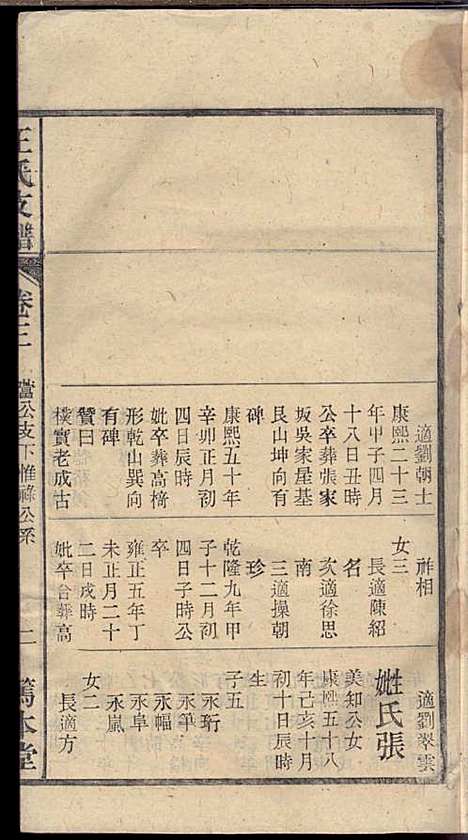 適劉朝士
康熙二十三
年甲子四月
十八日丑時
公卒葬張家
坂吳家屋基
艮山坤向有
碑
康熙五十年
辛卯正月初
四日辰時
妣卒葬高樁
形乾山巽向
有碑
贊曰
樸實老成古
祚相
女三
長適陳紹
名
次適徐思
南
三適操朝
珍
乾隆九年甲
子十二月初
四日子時公
卒
雍正五年丁
未正月二十
二日戌時
妣卒合葬高
適劉翠雲
妣氏張
美知公女
康熙五十八
年己亥十月
初十日辰時
生
子五
永珩
永筆
永幅
永阜
永嵐
女二
長適方
王氏支譜
卷三
璫公支下惟祿公系
二
篤本堂